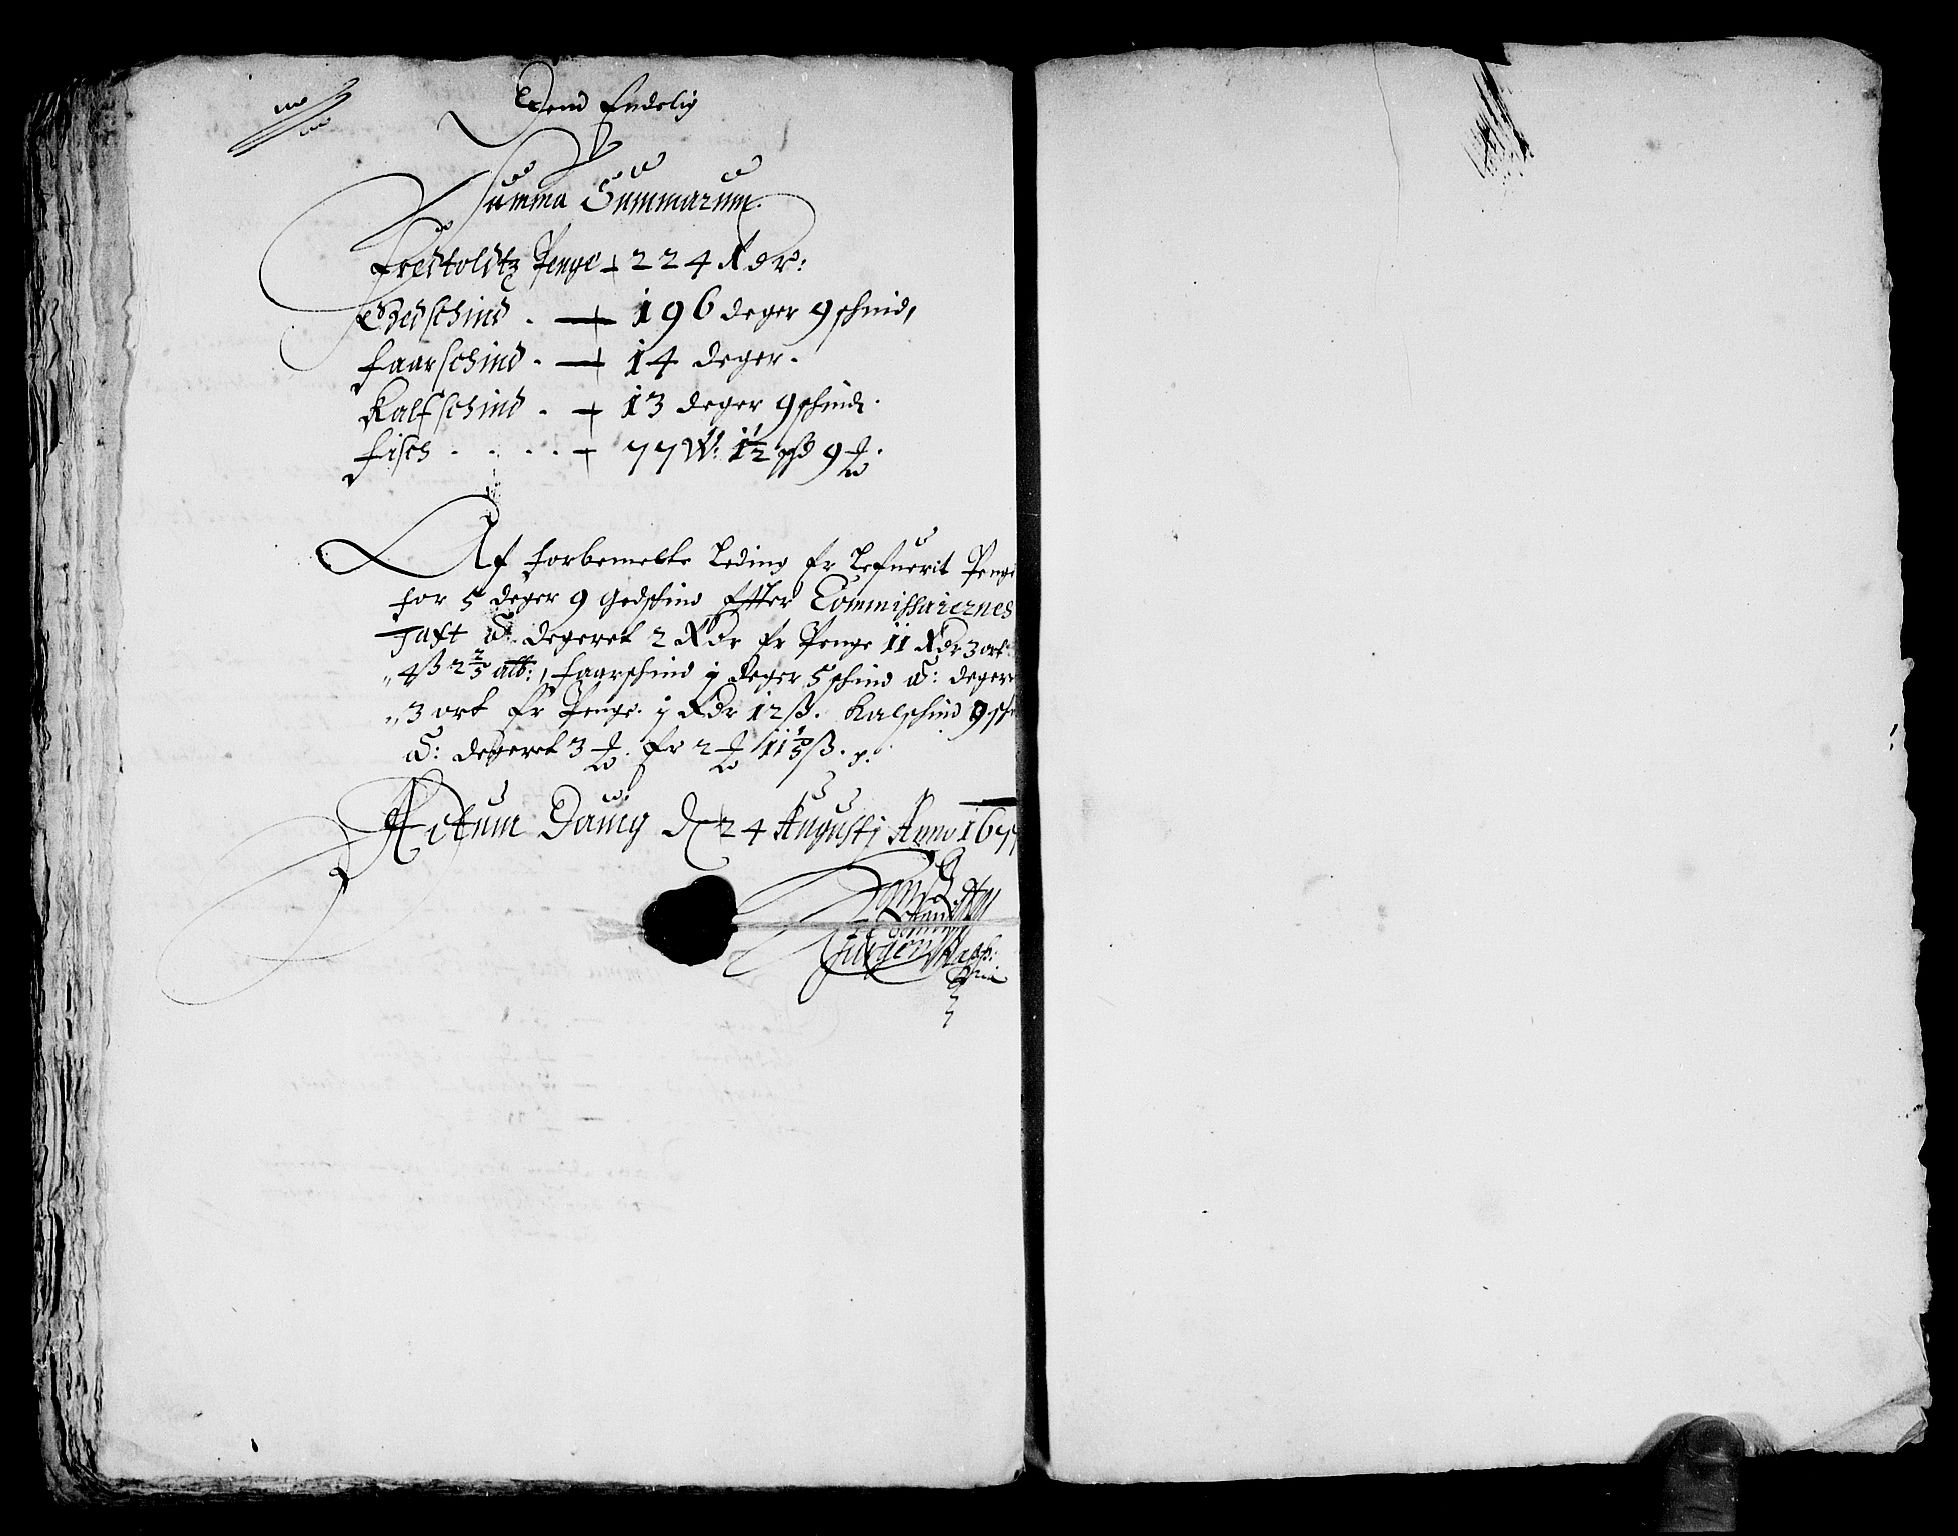 Dend Endelig
Summa Summarum.
Fredtoldtz Penge 224 Rdr:
Giedschind . — 196 deger 9 schind,
faarschind . — 14 deger.
Kalfschind . — 13 deger 9 schind.
fisch . . . . — 77 W: 1½ pd 9
Af forbemelte Leding er Lefuerit Penge
for 5 deger 9 Gedschind Efter Commissariernes
Taxt á degeret 2 Rdr er Penge 11 Rdr 3 ort
4 ß 2 2/5 alb:, faarschind j deger 5 schind á: deger
3 ort er Penge j Rdr 12 ß. Kalschind 9
á: degeret 3 er 2 11 1/5 ß.
Actum d 24 Augustj Anno 167
Jürgen